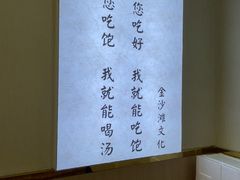 您吃好 我就能吃饱
您吃饱 我就能喝汤
金沙滩文化